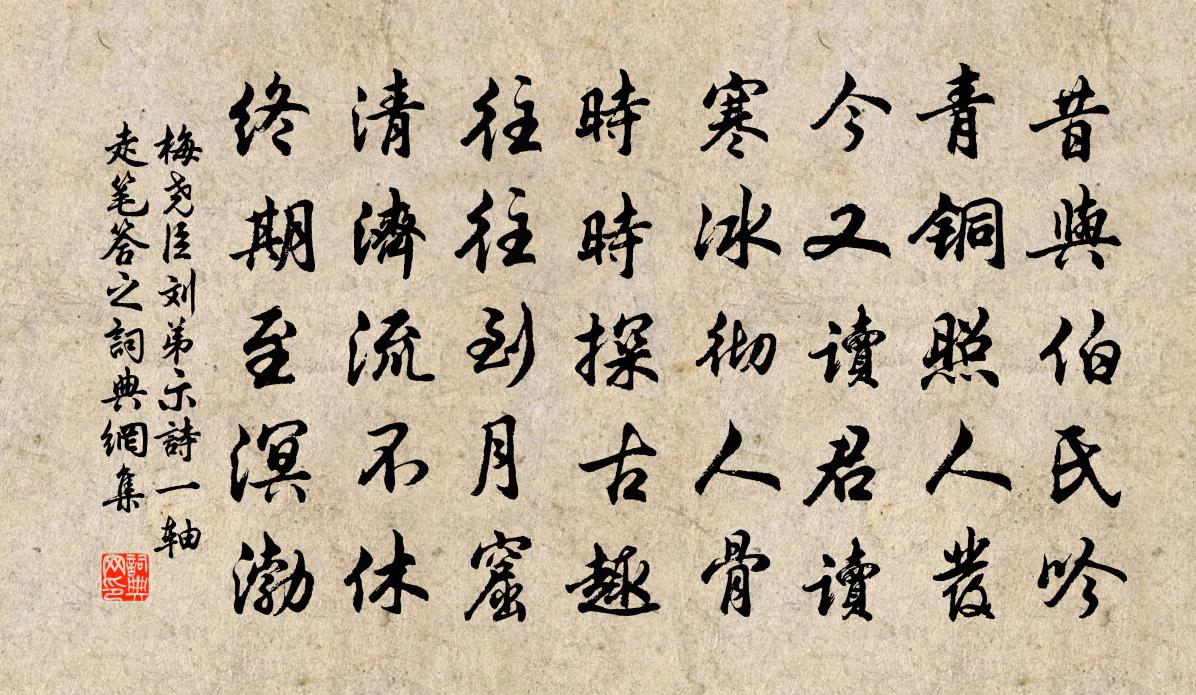 昔與伯氏吟
青铜照人發
今又讀君讀
寒冰彻人骨
時時探古趣
往往到月窟
清濟流不休
终期至溟渤
梅尧臣刘弟示詩一轴
走笔答之詞典網集
詞典網印